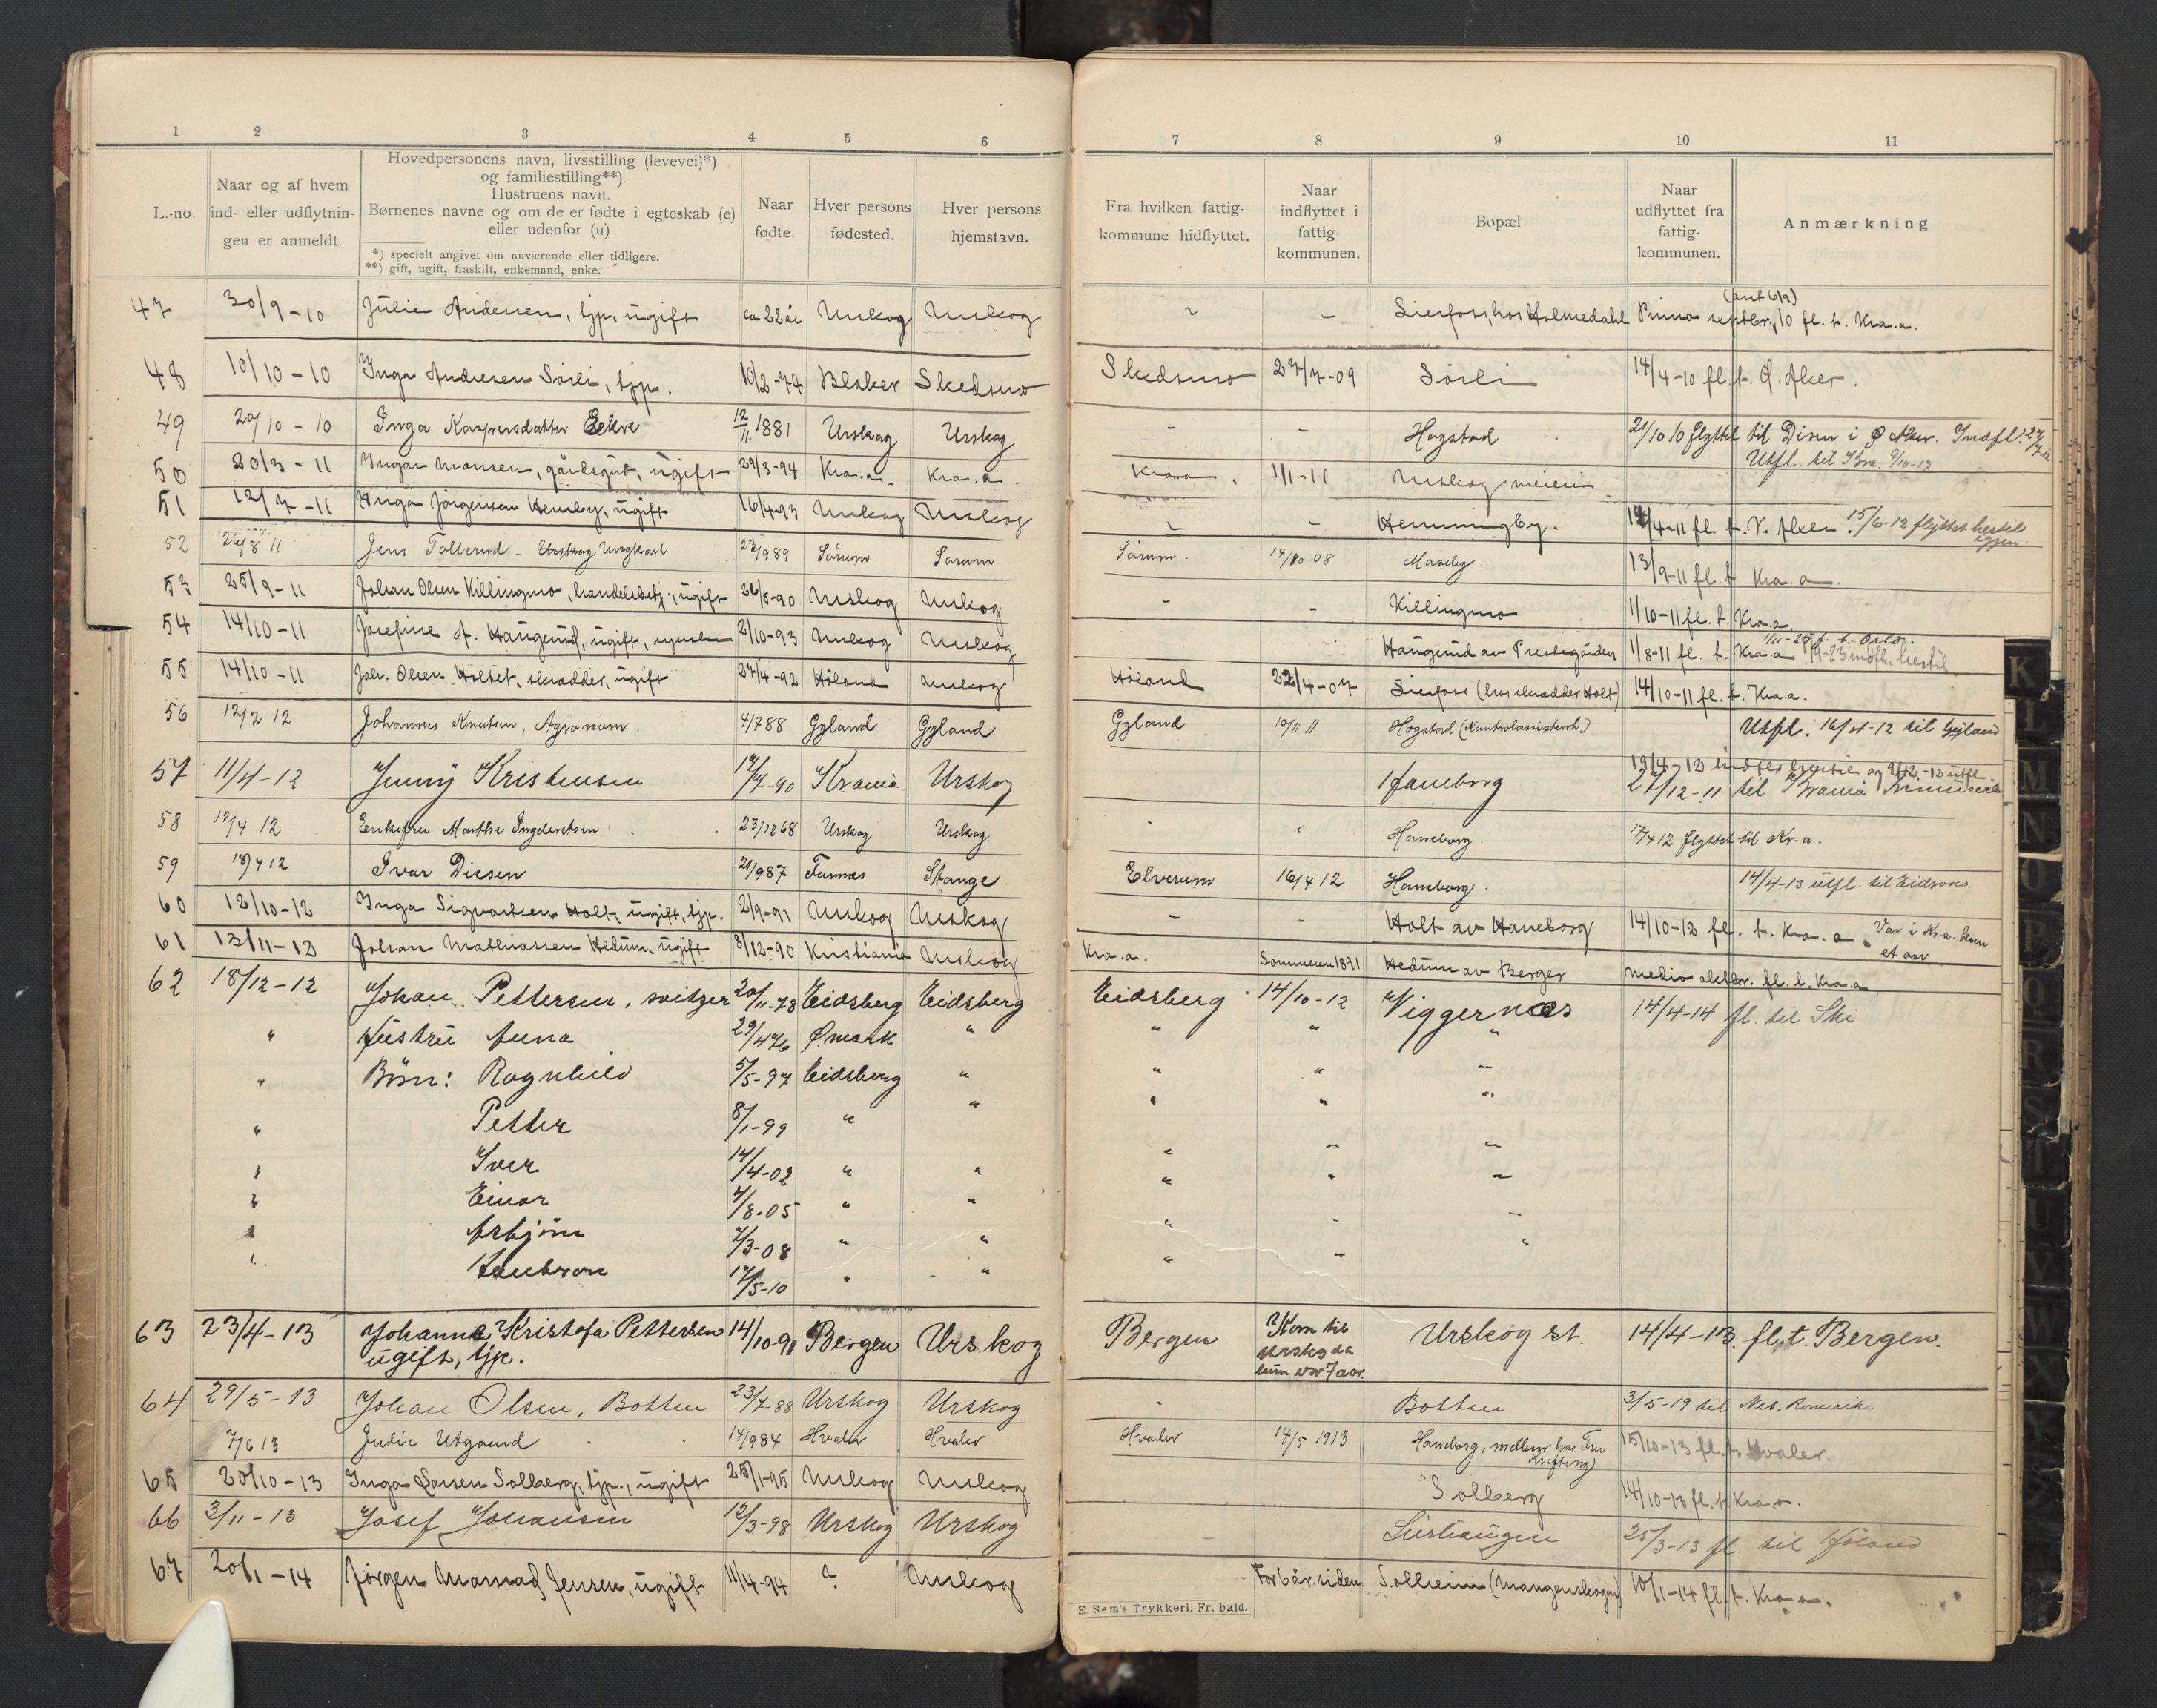 1 2 3 4 5 6 7 8 9 10 11
L.-no.
Naar og af hvem
ind- eller udflytnin-
gen er anmeldt.
Hovedpersonens navn, livsstilling (levevei)*)
og familiestilling**).
Hustruens navn.
Børnenes navne og om de er fødte i egteskab (e)
eller udenfor (u).
*) specielt angivet om nuværende eller tidligere.
**) gift, ugift, fraskilt, enkemand, enke.
Naar
fødte.
Hver persons
fødested.
Hver persons
hjemstavn.
Fra hvilken fattig-
kommune hidflyttet.
Naar
indflyttet i
fattig-
kommunen.
Bopæl
Naar
udflyttet fra
fattig-
kommunen.
Anmærkning
47 30/9-10 Julie Andersen, tjp., ugift ca 22 år Urskog Urskog - - Lierfoss, hos Holmedahl Primo septbr. 10 fl. t. Kra.a.
48 10/10-10 Inga Andresen Sörli, tjp. 10/2-74 Blaker Skedsmo Skedsmo 27/7-09 Sörli 14/4-10 fl. t. Ø. Aker.
49 29/10-10 Inga Kaspersdatter Eekre 12/11 1881 Urskog Urskog - - Hogstad 21/10 10 flyttet til Disen i Ø Aker. Indfl. 24/7-12
Utfl. til Kra. 9/10-12
50 20/3-11 Ingar Monsen, gårdsgut, ugift 29/3-94 Kra.a. Kra.a. Kra.a. 1/1-11 Urskog meieri
51 12/7-11 Inga Jörgensen Hemby, ugift 16/4-93 Urskog Urskog - - Hemmingby. 14/4-11 fl. t. V. Aker. 15/6-12 flyttet hertil
igjen.
52 26/8 11 Jens Tollerud - Urskog Ungkarl 22/9 89 Sörum Sörum Sörum. 14/10 08 Moseby. 13/9-11 fl. t. Kra.a.
53 25/9-11 Johan Olsen Killingmo, handelsbetj., ugift 26/8-90 Urskog Urskog - - Killingmo 1/10-11 fl. t. Kra.a.
54 14/10-11 Josefine A. Haugerud, ugift, 2/10-93 Urskog Urskog Haugerud av Prestegården 1/8-11 fl. t. Kra.a. 1/11-25 f. t. Oslo.
1/9-23 indfl. hertil
55 14/10-11 Joh. Olsen Holtet, skrædder, ugift 27/4-92 Höland Urskog Höland 22/4-07 Lierfoss (hos skrædder Holt) 14/10-11 fl. t. Kra.a.
56 12/2 12 Johannes Knutsen, Agronom. 4/7 88 Gyland Gyland Gyland 10/11 11 Hogstad (Kontrolassistent) Utfl. 16/4-12 til Gyland
57 11/4-12 Jenny Kristensen 14/7-90 Krania. Urskog Haneborg 19/4-12 indfl. hertil og 9/12-12 utfl.
27/12-11 til Krania
58 12/4 12 Enkefru Marthe Ingebretsen 23/12 68 Urskog Urskog - Haneborg. 17/4 12 flyttet til Kr.a.
59 18/4 12 Ivar Diesen 21/9 87 Furnæs Stange Elverum 16/4 12 Haneborg. 14/4-13 utfl. til Eidsvold
60 12/10-12 Inga Sigvartsen Holt, ugift, tjp. 2/9-91 Urskog Urskog - - Holt av Haneborg 14/10-12 fl. t. Kra.a. Var i Kr.a. kun
et aar
61 13/11-12 Johan Mathiassen Hedum, ugift 8/12-90 Kristiania Urskog Kra.a. Sommeren 1891 Hedum av Berger medio oktbr. fl. t. Kra.a
62 18/12-12 Johan Pettersen, svitzer 20/11-78 Eidsberg Eidsberg Eidsberg 14/10-12 Viggernes 14/4-14 fl. til Ski
" Hustru Anna 29/4 76 Ø.mark " " " "
" Börn: Ragnhild 5/5-97 Eidsberg " " " "
" Petter 8/1-99 " " " " "
" Iver 14/4-02 " " " " "
" Einar 4/8-05 " " " " "
" Asbjörn 7/3-08 " " " " "
" 17/5-10 " " " " "
63 23/4-13 Johanna Kristofa Pettersen 14/10-91 Bergen Urskog Bergen Kom til Urskog st. 14/4-13. fl. t. Bergen.
ugift, tjp. Urskog da
hun var 7 aar.
64 29/5-13 Johan Olsen, Botten 23/7-88 Urskog Urskog - Botten 3/5-19 til Nes. Romerike
7/6 13 Julie Utgaard 14/9 84 Hvaler Hvaler Hvaler 14/5 1913 Haneborg, mellem hos Fru
Krefting) 15/10-13 fl. t. Hvaler.
65 20/10-13 Inga Larsen Solberg, tjp., ugift 25/1-95 Urskog Urskog Solberg 14/10-13 fl. t. Kra.a.
66 3/11-13 Josef Johansen 12/3-98 Urskog Urskog - Lierhaugen 25/3-13 fl. til Höland
67 20/1-14 Jörgen Jensen, ugift 11/4-94 ? Urskog For 6 år siden Solheim (Mangenskogen) 10/1-14 fl. t. Kra.a.
E. Sem's Trykkeri, Fr. hald.
K
L
M
N
O
P
Q
R
S
T
U
V
X
Y